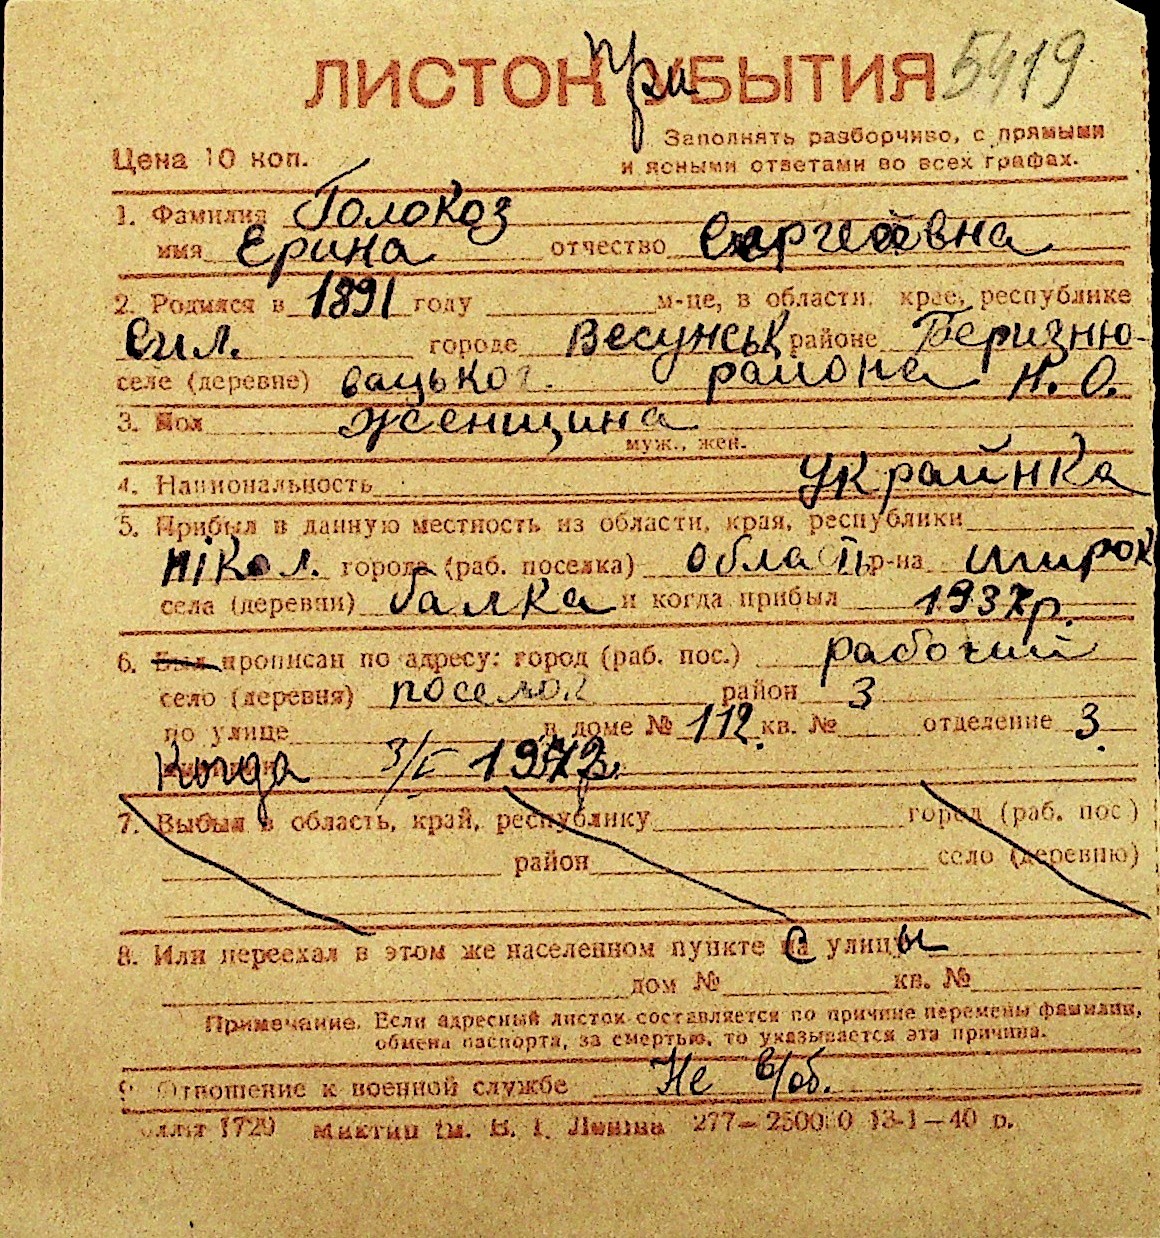 ЛИСТОК При УБЫТИЯ 5419
Заполнять разборчиво, с прямыми
Цена 10 коп. и ясными ответами во всех графах.
1. Фамилия Голокоз
имя Ерина отчество Сергеевна
2. Родился в 1891 году м-це, в области, крае, республике
Сил. городе Весунськ районе Беризню-
селе (деревне) вацьког. района Н. О.
3. Пол женщина
муж., жен.
4. Национальность Украйнка
5. Прибыл в данную местность из области, края, республики
Нікол. города (раб. поселка) область р-на широк
села (деревни) балка и когда прибыл 1937р.
6. Был прописан по адресу: город (раб. пос.) рабочий
село (деревня) поселок район 3
по улице в доме № 112. кв. № отделение 3.
Когда 3/I
7. Выбыл в область, край, республику город (раб. пос.)
район село (деревню)
8. Или переехал в этом же населенном пункте с улицы
дом № кв. №
Примечание. Если адресный листок составляется по причине перемены фамилии,
обмена паспорта, за смертью, то указывается эта причина.
9. Отношение к военной службе Не в/об.
1729 им. В. І. Леніна 277— 13-1—40 р.